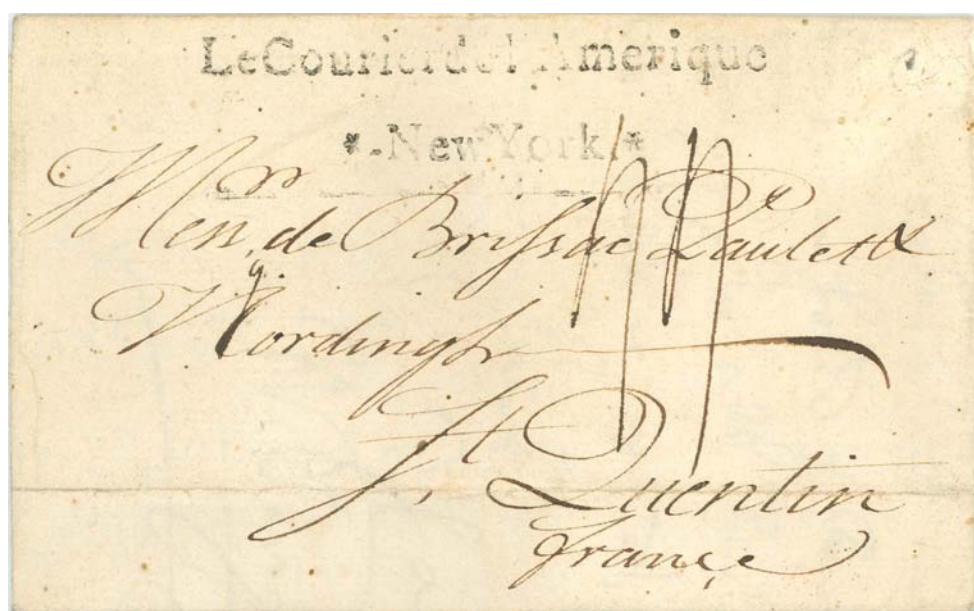 Le Courier de l'Amerique
*-New York.*
Mess.rs de Brissac Paulet &
Nordingh
St Quentin
france